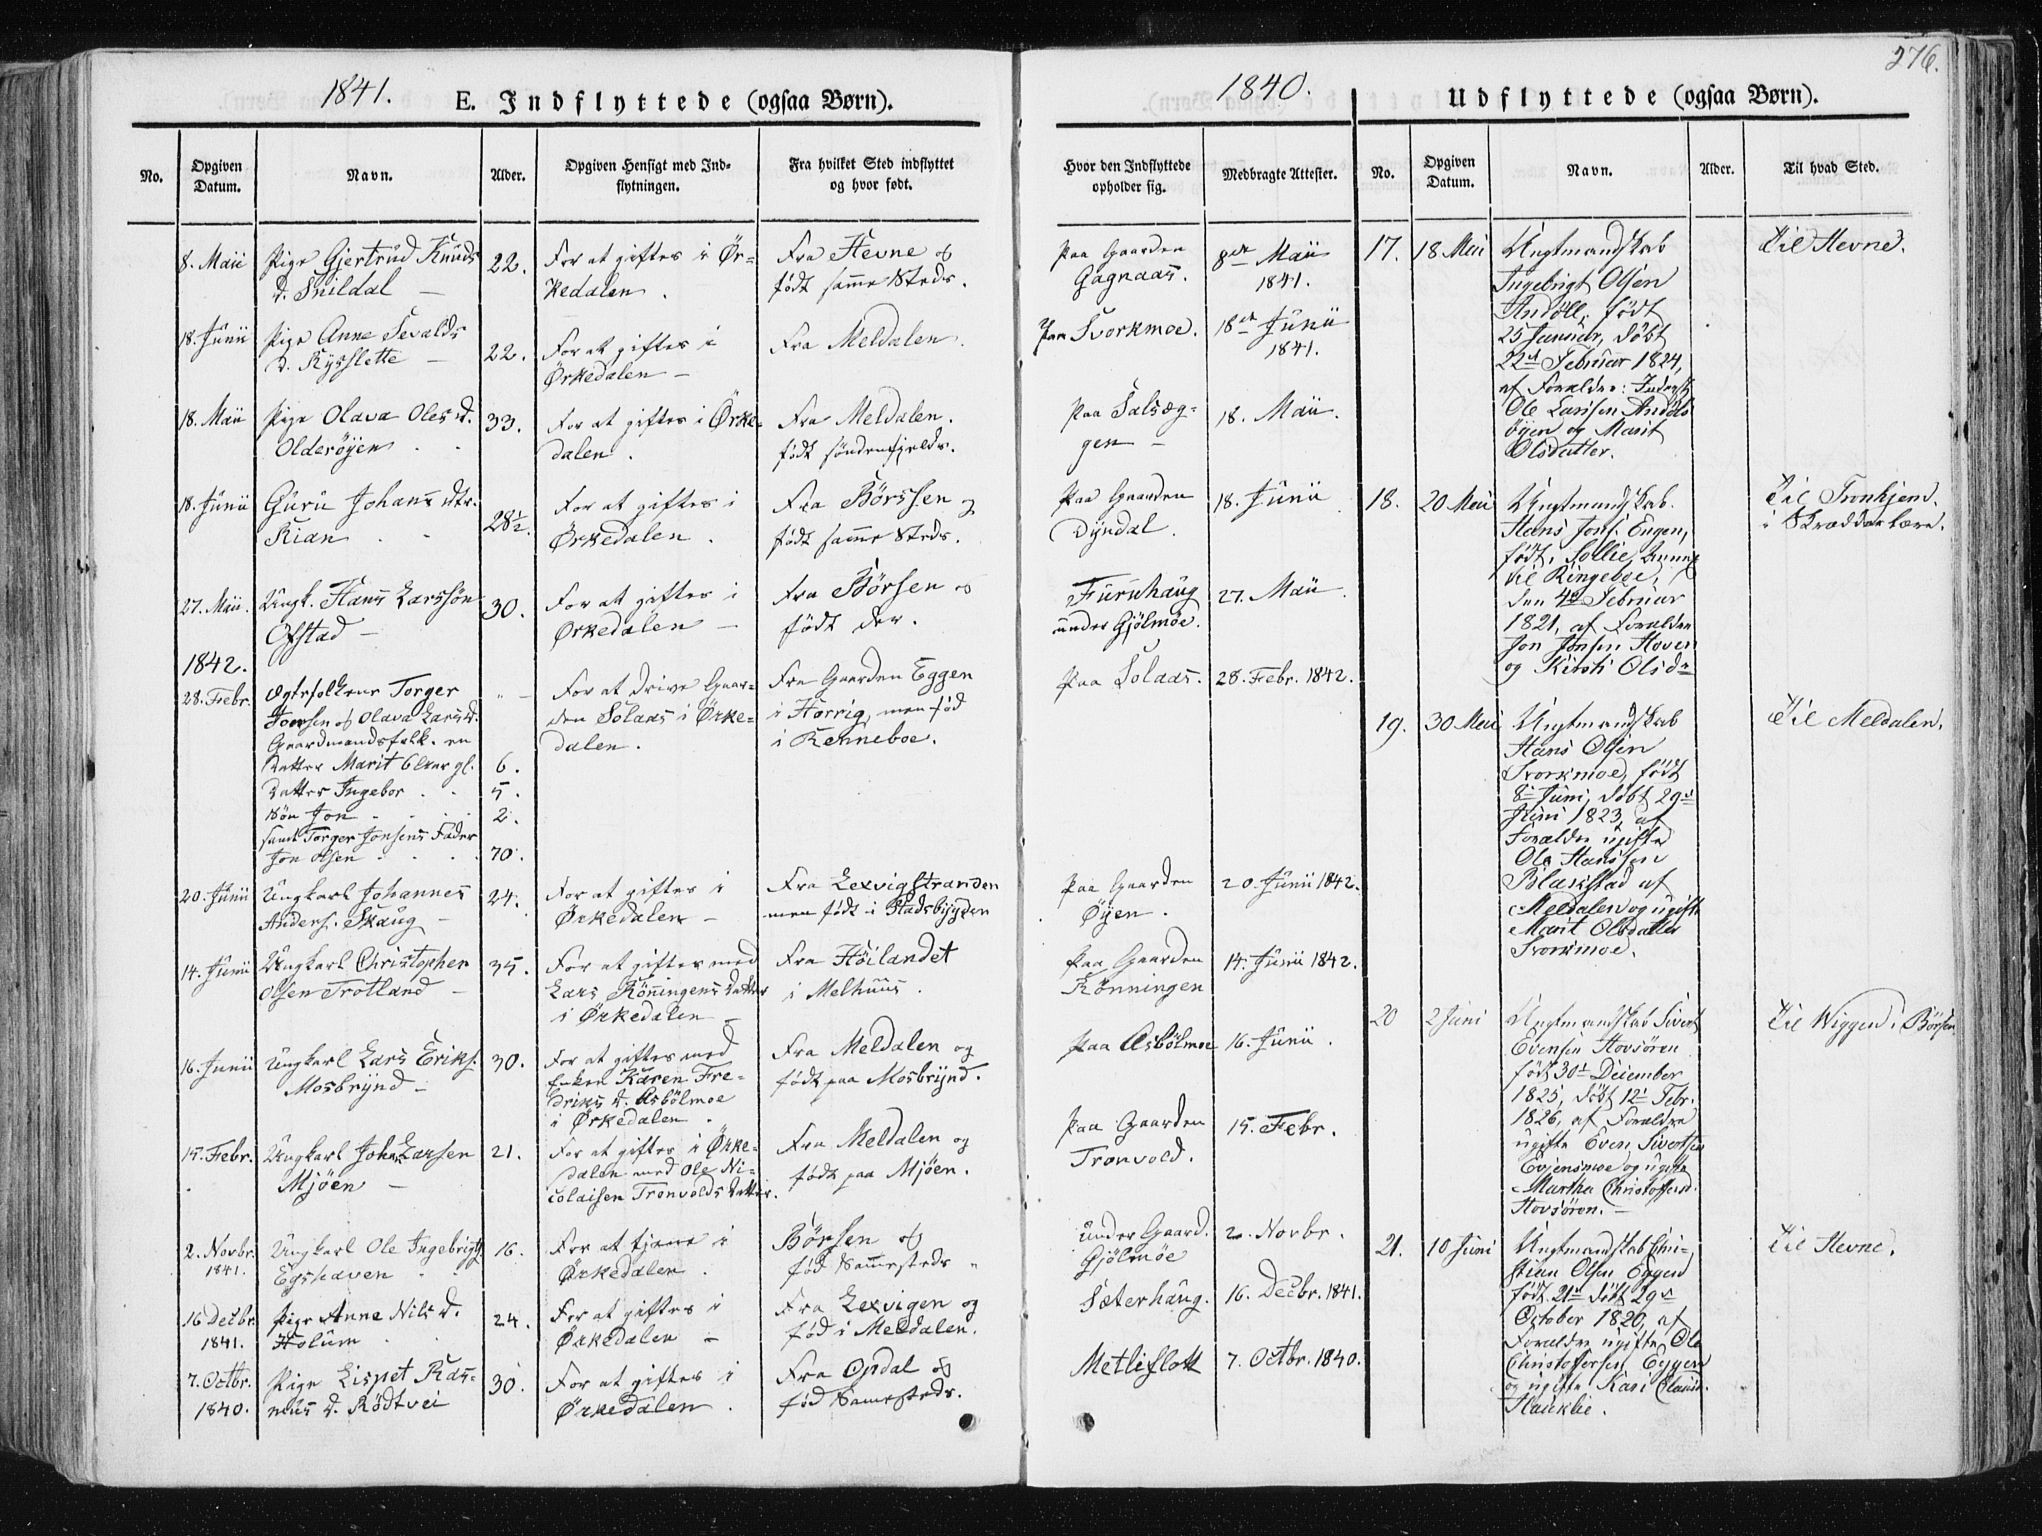 276.
1841.
E. Indflyttede (ogsaa Børn).
1840.
Udflyttede (ogsaa Børn).
No.
Opgiven Datum.
Navn.
Alder.
Opgiven Hensigt med Ind-
flytningen.
Fra hvilket Sted indflyttet
og hvor født.
Hvor den Indflyttede
opholder sig.
Medbragte Attester.
8. Maii
Pige Gjertrud Knuds
d. Snildal —
22.
For at giftes i Ør-
kedalen.
Fra Hevne og
født samme Steds.
Paa Gaarden
Gagnaas.
8de Maii
1841.
18. Junii
Pige Anne Sevalds
d. Rysslette —
22.
For at giftes i
Ørkedalen —
Fra Meldalen.
Paa Svorkmoe.
18de Junii
1841.
18. Maii
Pige Olava Oles d.
Olderøyen
33.
For at giftes i Ørke-
dalen.
Fra Meldalen.
født søndenfjelds.
Paa Salsæg-
gen —
18. Maii.
18. Junii
Guru Johans dtr.
Kian
28½.
For at giftes i
Ørkedalen.
Fra Børssen og
født samme Steds.
Paa Gaarden
Dyndal.
18. Junii
27. Maii.
Ungk. Hans Larssøn
Ofstad —
30.
For at giftes i
Ørkedalen —
Fra Børsen og
født der.
Furuhaug
under Gjølmøe.
27. Maii.
1842.
28. Febr.
Ægtefolkene Torger
Joensen og Olava Larsd.
Gaardmandsfolk. en
Datter Marit 6 Aar gl.
6.
Datter Ingebor
5.
Søn Jon
2.
samt Torger Jonsens Fader
Jon Olsen
70.
For at drive Gaar-
den Solaas i Ørke-
dalen.
Fra Gaarden Eggen
i Horrig, men fød
i Renneboe.
Paa Solaas.
28. Febr. 1842.
20. Junii
Ungkarl Johannes
Anders. Skaug —
24.
For at giftes i
Ørkedalen —
Fra Lexvigstranden
men født i Stadsbygden
Paa Gaarden
Øyen.
20. Junii 1842.
14. Junii
Ungkarl Christopher
Olsen Trotland —
35.
For at giftes med
Lars Rönningens Datter
i Ørkedalen —
Fra Höilandet
i Melhuus.
Paa Gaarden
Rønningen
14. Junii 1842.
16. Junii
Ungkarl Lars Eriks.
Mosbrynd —
30.
For at giftes med
Enken Karen Fre-
driks d. Asbölmoe
i Ørkedalen.
Fra Meldalen og
født paa Mosbrynd.
Paa Asbölmoe
16. Junii.
15. Febr.
Ungkarl John Larsen
Mjöen —
21.
For at giftes i Ørke-
dalen med Ole Ni-
colaisen Tronvolds Datter.
Fra Meldalen og
født paa Mjöen.
Paa Gaarden
Tronvold.
15. Febr.
2. Novbr.
1841.
Ungkarl Ole Ingebrigts.
Egshaven
16.
For at tjene i
Ørkedalen.
Børsen og
fød Sammesteds
under Gaard.
Gjølmöe
2. Novbr.
16 Decbr.
1841.
Pige Anne Nils d.
Holum
24.
For at giftes i
Ørkedalen —
Fra Lexvigen og
fød i Meldalen.
Sæterhaug.
16. Decbr. 1841.
7. Octbr.
1840.
Pige Lispet Ras-
mus d. Rödtvei
30.
For at giftes i
Ørkedalen.
Fra Opdal og
fød Samesteds.
Metliflott
7. Octbr. 1840.
No.
Opgiven Datum.
Navn.
Alder.
Til hvad Sted.
17.
18 Mai
Ungtmandskab
Ingebrigt Olsen
Andöll, født
25 Januar, døbt
22d Februar 1824,
af Forældre: Inderst
Ole Larssen Andöls
öyen og Marit
Olsdatter.
Til Hevne.
18.
20 Mai
Ungtmandskab.
Hans Jons. Engen,
født i Sollie, Annex
til Ringeboe,
den 4d Februar
1821, af Forældre
Jon Jonsen Hoven
og Kirsti Olsdr
Til Tronhjem.
i Skrædderlære.
19.
30 Mai
Ungtmandskab
Hans Olsen
Svorkmoe, født
8de Juni, døbt 29d
Juni 1823, af
Forældre ugifte
Ole Hanssen
Blakstad af
Meldalen og ugifte
Marit Olsdatter
Svorkmoe.
Til Meldalen.
20
2 Juni
Ungtmandskab Sivert
Evensen Hovsören
født 30d December
1825, døbt 12d Febr.
1826, af Forældre
ugifte Even Sivertsen
Evjensmoe og ugifte
Martha Christoffersd.
Hovsören. —
Til Wiggen i Børsen
21.
10 Juni
Ungtmandskab Chri-
stian Olsen Eggen
født 21d døbt 29d
October 1820, af
Forældre ugifte Ole
Christoffersen Eggen
og ugifte Kari
Hauklie.
Til Hevne.